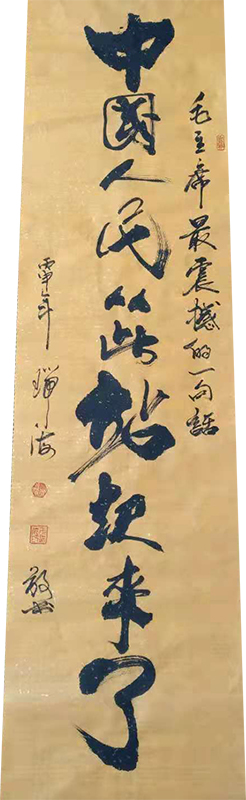 毛主席最震撼的一句話
中國人民从此站起来了
年 海 敬书